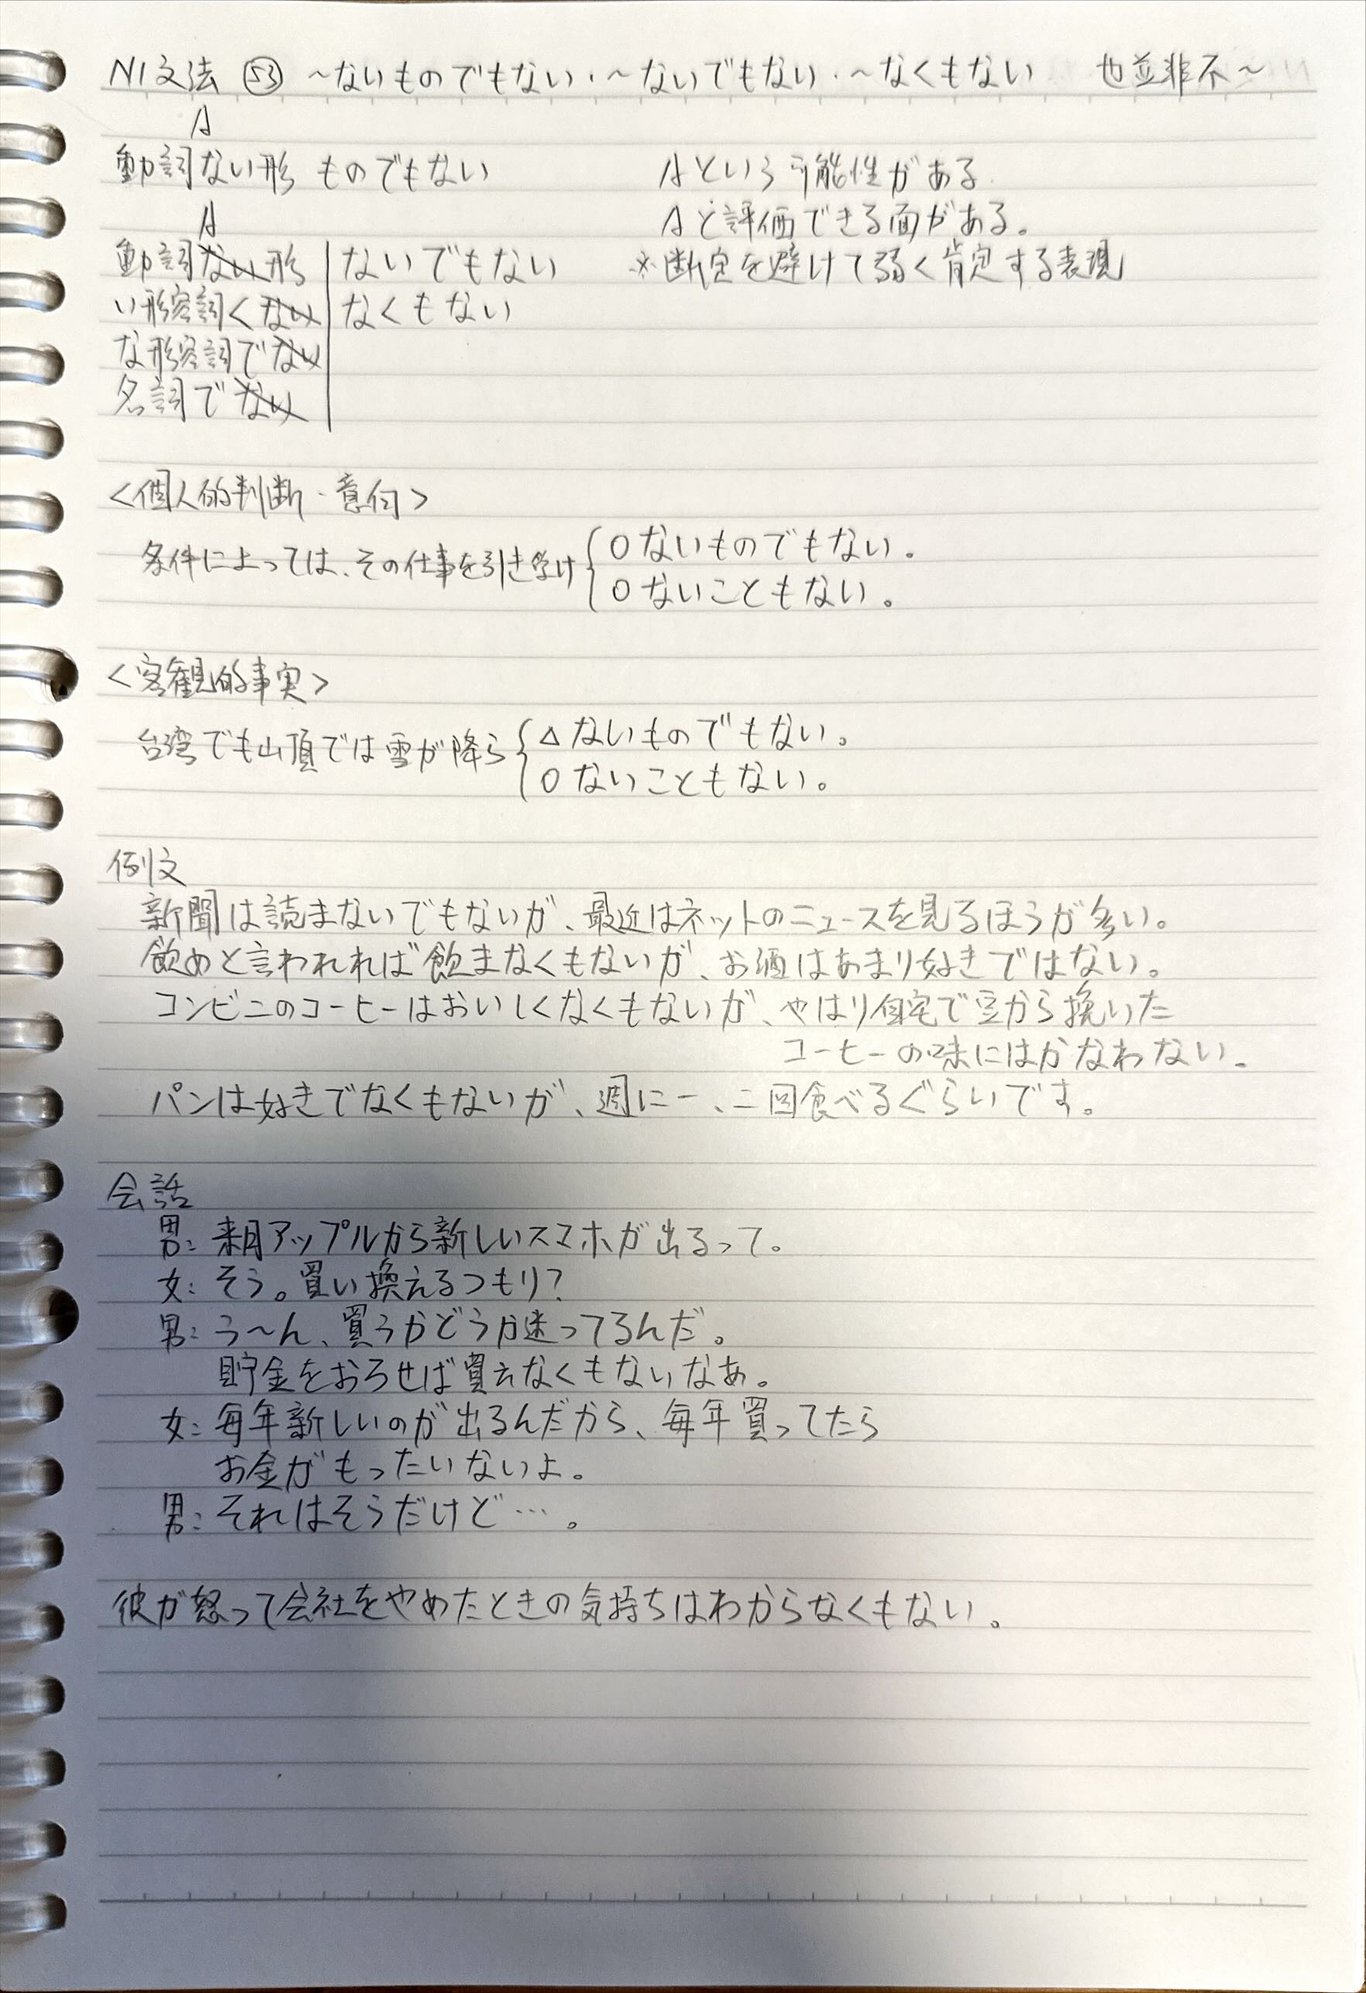 N1文法 ㊼ ～ないものでもない・～ないでもない・～なくもない 也並非不～
A
動詞ない形 ものでもない Aという可能性がある
A Aと評価できる面がある。
動詞ない形 ないでもない ※断定を避けて弱く肯定する表現
い形容詞くない なくもない
な形容詞でない
名詞でない
<個人的判断・意向>
条件によっては、その仕事を引き受け ○ないものでもない。
○ないこともない。
<客観的事実>
台湾でも山頂では雪が降ら △ないものでもない。
○ないこともない。
例文
新聞は読まないでもないが、最近はネットのニュースを見るほうが多い。
飲めと言われれば飲まなくもないが、お酒はあまり好きではない。
コンビニのコーヒーはおいしくなくもないが、やはり自宅で豆から挽いた
コーヒーの味にはかなわない。
パンは好きでなくもないが、週に一、二回食べるぐらいです。
会話
男：来月アップルから新しいスマホが出るって。
女：そう。買い換えるつもり？
男：う～ん、買うかどうか迷ってるんだ。
貯金をおろせば買えなくもないなあ。
女：毎年新しいのが出るんだから、毎年買ってたら
お金がもったいないよ。
男：それはそうだけど…。
彼が怒って会社をやめたときの気持ちはわからなくもない。